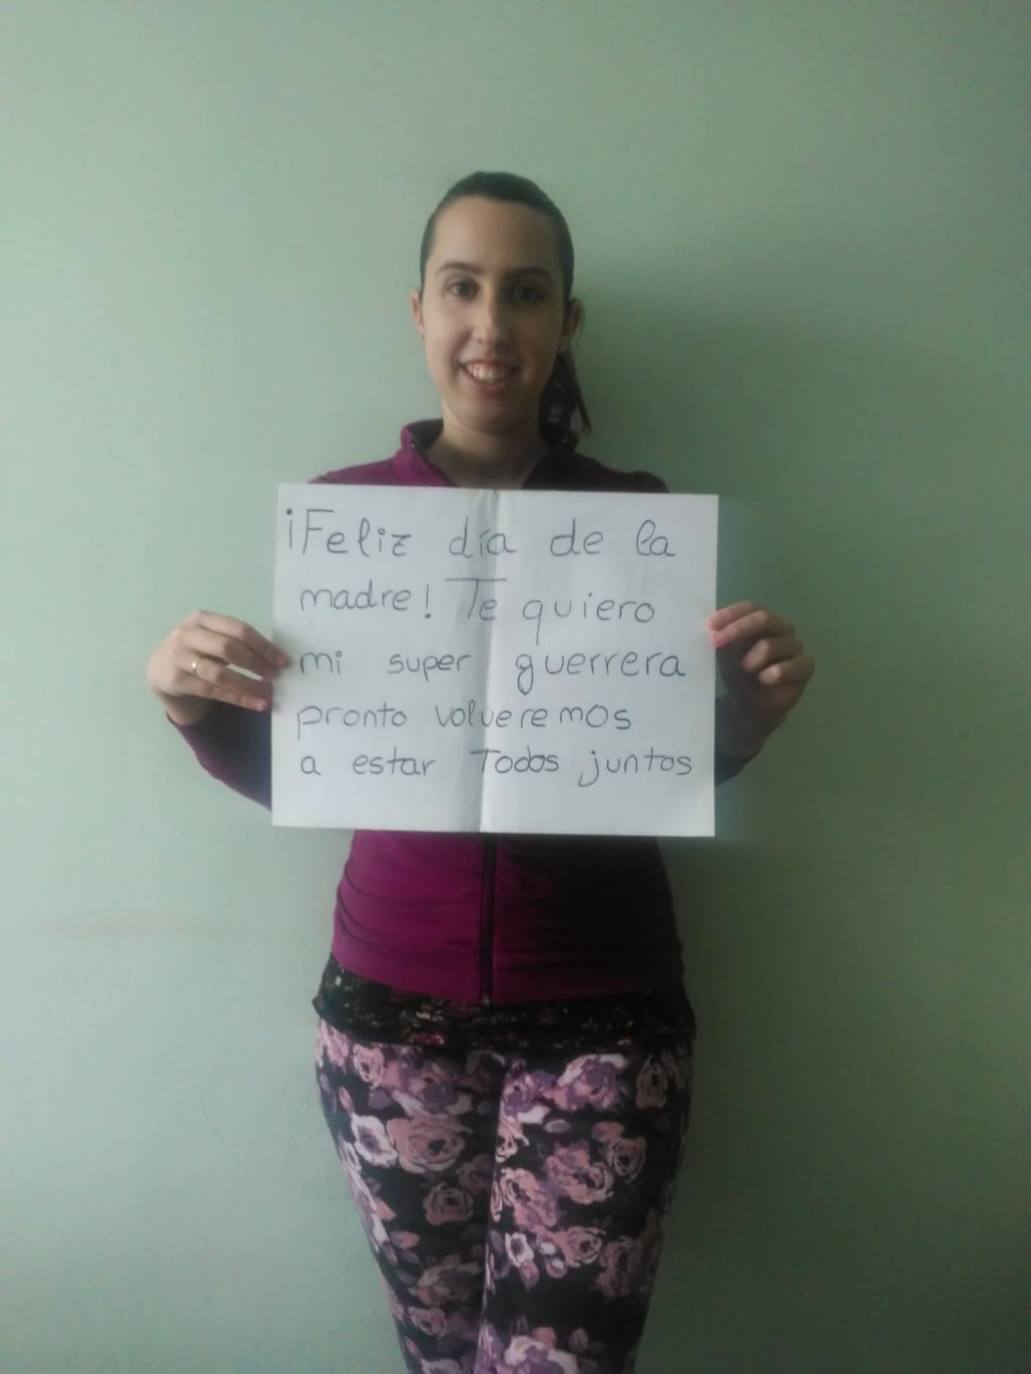 ¡Feliz día de la
madre! Te quiero
mi super guerrera
pronto volveremos
a estar Todos juntos